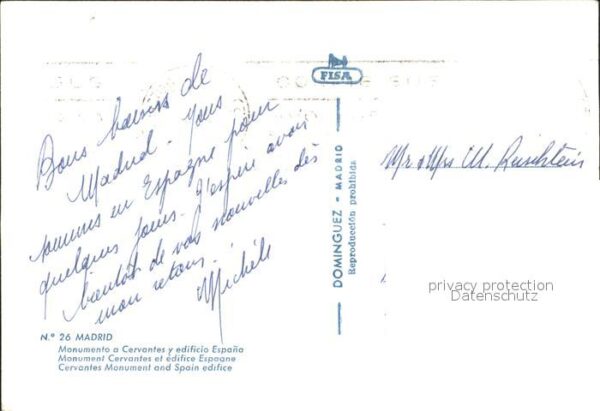 Bons baisers de
Madrid. Nous
sommes en Espagne pour
quelques jours. J'espère avoir
bientôt de vos nouvelles dès
mon retour.
Michèle
FISA
DOMINGUEZ - MADRID
Reproducción prohibida
Mr & Mrs M. Reichstein
privacy protection
Datenschutz
N.º 26 MADRID
Monumento a Cervantes y edificio España
Monument Cervantes et édifice Espagne
Cervantes Monument and Spain edifice